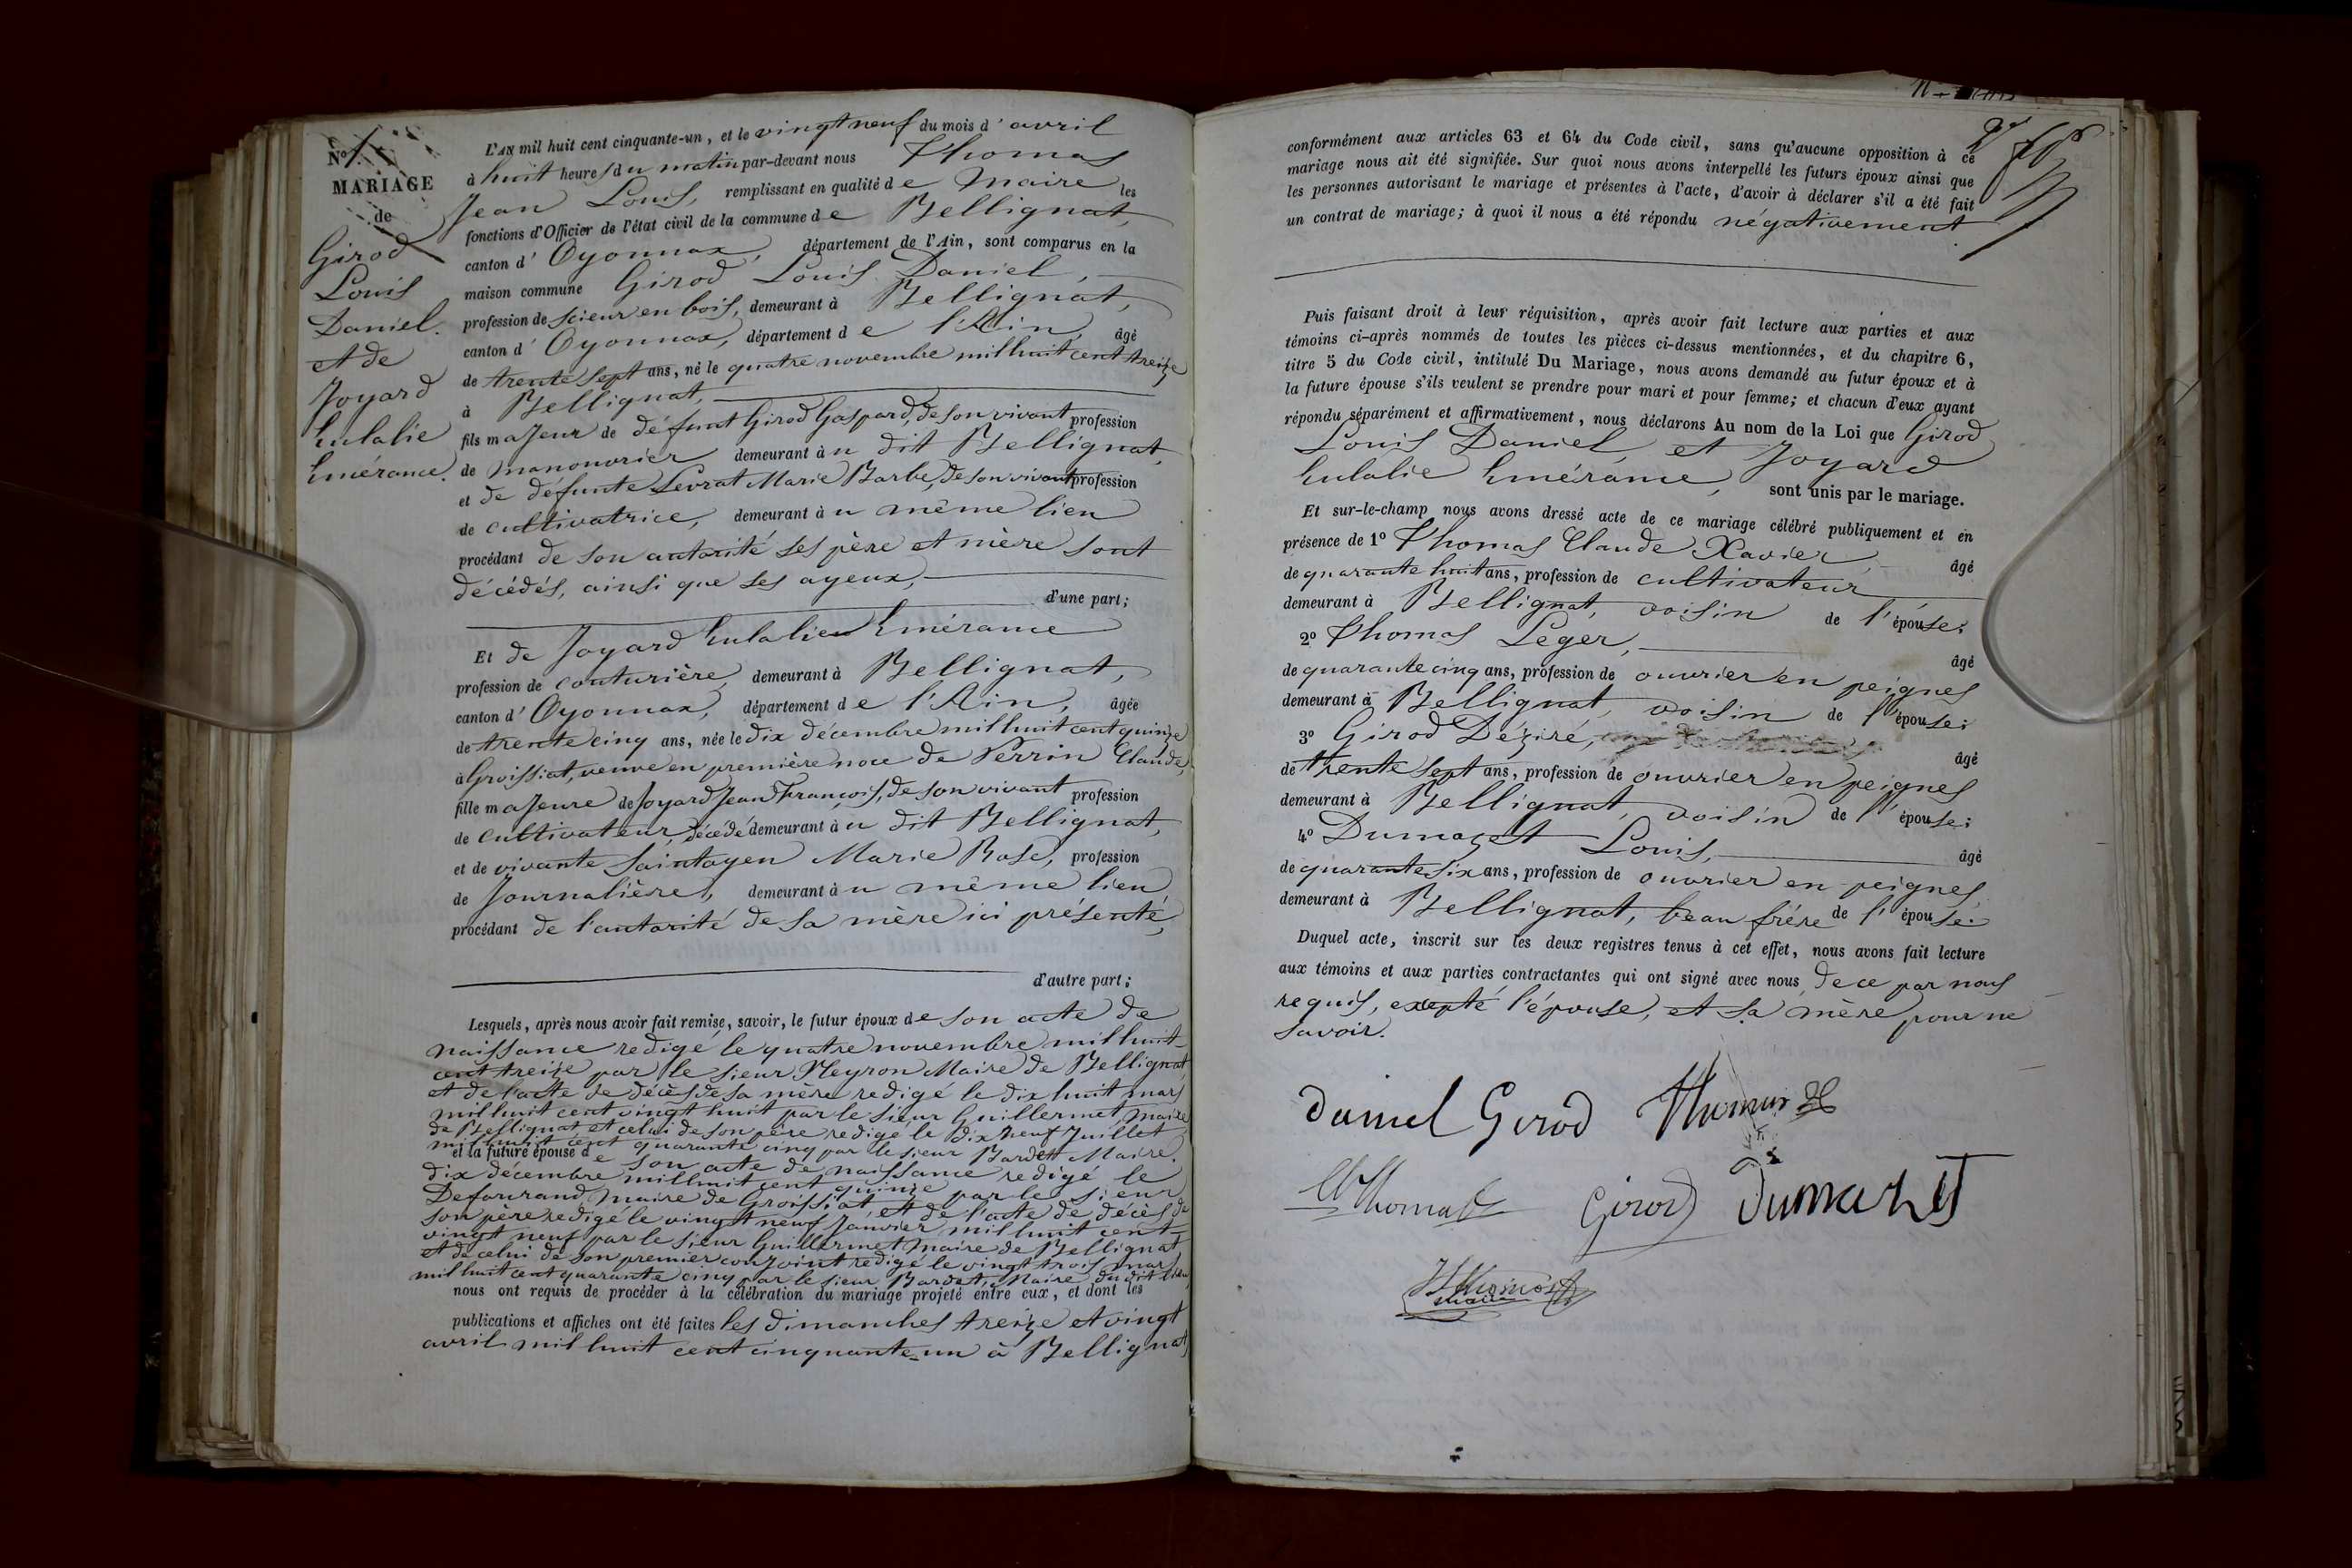 N° 1
MARIAGE
de
Girod
Louis
Daniel.
et de
Joyard
Eulalie
Emérance.
L'AN mil huit cent cinquante-un, et le vingt neuf du mois d'avril
à huit heures du matin par-devant nous Thomas
Jean Louis, remplissant en qualité de Maire les
fonctions d'Officier de l'état civil de la commune de Bellignat,
canton d'Oyonnax, département de l'Ain, sont comparus en la
maison commune Girod Louis Daniel,
profession de scieur en bois, demeurant à Bellignat,
canton d'Oyonnax, département de l'Ain, âgé
de trente sept ans, né le quatre novembre mil huit cent treize
à Bellignat,
fils majeur de défunt Girod Gaspard, de son vivant profession
de manouvrier demeurant àu dit Bellignat,
et de défunte Levrat Marie Barbe, de son vivant profession
de cultivatrice, demeurant àu même lieu
procédant de son autorité ses père et mère sont
décédés, ainsi que ses ayeux,
d'une part;
Et de Joyard Eulalie Emérance
profession de couturière, demeurant à Bellignat,
canton d'Oyonnax, département de l'Ain, âgée
de trente cinq ans, née le dix décembre mil huit cent quinze
à Groissiat, veuve en première noce de Perrin Claude,
fille majeure de Joyard Jean François, de son vivant profession
de cultivateur, décédé demeurant àu dit Bellignat,
et de vivante Saintoyen Marie Rose, profession
de Journalière, demeurant àu même lieu
procédant de l'autorité de sa mère ici présenté,
d'autre part;
Lesquels, après nous avoir fait remise, savoir, le futur époux de son acte de
naissance redigé le quatre novembre mil huit
cent treize par le sieur Meyron Maire de Bellignat
et de l'acte de décès de sa mère redigé le dix huit mars
mil huit cent vingt huit par le sieur Guillermet, Maire
de Bellignat et celui de son père redigé le dix neuf Juillet
mil huit cent quarante cinq par le sieur Bardet Maire.
et la future épouse de son acte de naissance redigé le
dix décembre mil huit cent quinze par le sieur
Defourand, Maire de Groissiat et de l'acte de décès de
son père redigé le vingt neuf Janvier mil huit cent
vingt neuf par le sieur Guillermet Maire de Bellignat
et de celui de son premier conjoint redigé le vingt trois mars
mil huit cent quarante cinq par le sieur Bardet, Maire du dit lieu,
nous ont requis de procéder à la célébration du mariage projeté entre eux, et dont les
publications et affiches ont été faites les dimanches treize et vingt
avril mil huit cent cinquante-un à Bellignat
conformément aux articles 63 et 64 du Code civil, sans qu'aucune opposition à ce
mariage nous ait été signifiée. Sur quoi nous avons interpellé les futurs époux ainsi que
les personnes autorisant le mariage et présentes à l'acte, d'avoir à déclarer s'il a été fait
un contrat de mariage; à quoi il nous a été répondu négativement.
Puis faisant droit à leur réquisition, après avoir fait lecture aux parties et aux
témoins ci-après nommés de toutes les pièces ci-dessus mentionnées, et du chapitre 6,
titre 5 du Code civil, intitulé Du Mariage, nous avons demandé au futur époux et à
la future épouse s'ils veulent se prendre pour mari et pour femme; et chacun d'eux ayant
répondu séparément et affirmativement, nous déclarons Au nom de la Loi que Girod
Louis Daniel, et Joyard
Eulalie Emérance, sont unis par le mariage.
Et sur-le-champ nous avons dressé acte de ce mariage célébré publiquement et en
présence de 1° Thomas Claude Xavier, âgé
de quarante huit ans, profession de cultivateur
demeurant à Bellignat, voisin de l'épouse;
2° Thomas Leger, âgé
de quarante cinq ans, profession de ouvrier en peignes
demeurant à Bellignat, voisin de l'épouse;
3° Girod Déziré, âgé
de trente sept ans, profession de ouvrier en peignes
demeurant à Bellignat, voisin de l'épouse;
4° Dumazet Louis, âgé
de quarante six ans, profession de ouvrier en peignes,
demeurant à Bellignat, beau frère de l'épouse.
Duquel acte, inscrit sur les deux registres tenus à cet effet, nous avons fait lecture
aux témoins et aux parties contractantes qui ont signé avec nous, de ce par nous
requis, excepté l'épouse, et sa mère pour ne
savoir.
Daniel Girod Thomas
Thomas Girod Dumazet
Thomas
maire